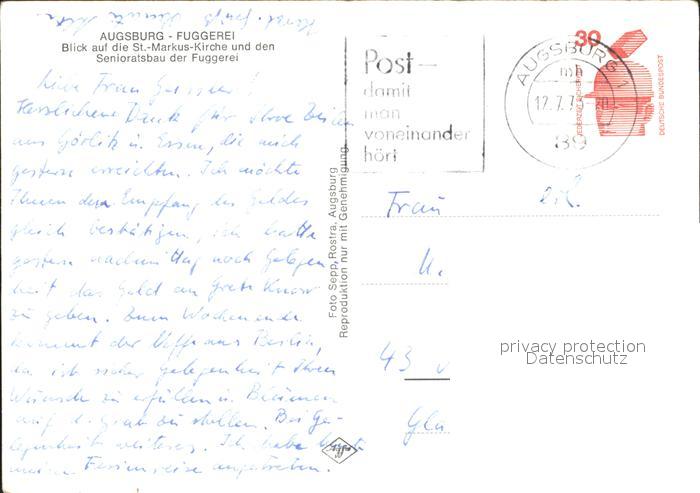 AUGSBURG - FUGGEREI
Blick auf die St.-Markus-Kirche und den
Senioratsbau der Fuggerei
Liebe Frau
Herzlichen Dank für Ihre beiden
aus Görlitz u. Essen, die mich
gestern erreichten. Ich möchte
Ihnen den Empfang des Geldes
gleich bestätigen, ich hatte
gestern nachmittag noch Gelegen-
heit das Geld an Grete
zu geben. Zum Wochenende
kommt der Neffe aus Berlin,
da ist sicher Gelegenheit Ihren
Wünsche zu erfüllen u. Blumen
auf d. Grab zu stellen. Bei Ge-
legenheit weiteres. Ich habe heute
meine Ferienreise angetreten.
Foto Sepp Rostra, Augsburg
Reproduktion nur mit Genehmigung
Agfa
Post-
damit
man
voneinander
hört
AUGSBURG 1
mh
12.7.7
89
30
JEDERZEIT SICHERHEIT
DEUTSCHE BUNDESPOST
Frau
U.
43
Gla
privacy protection
Datenschutz